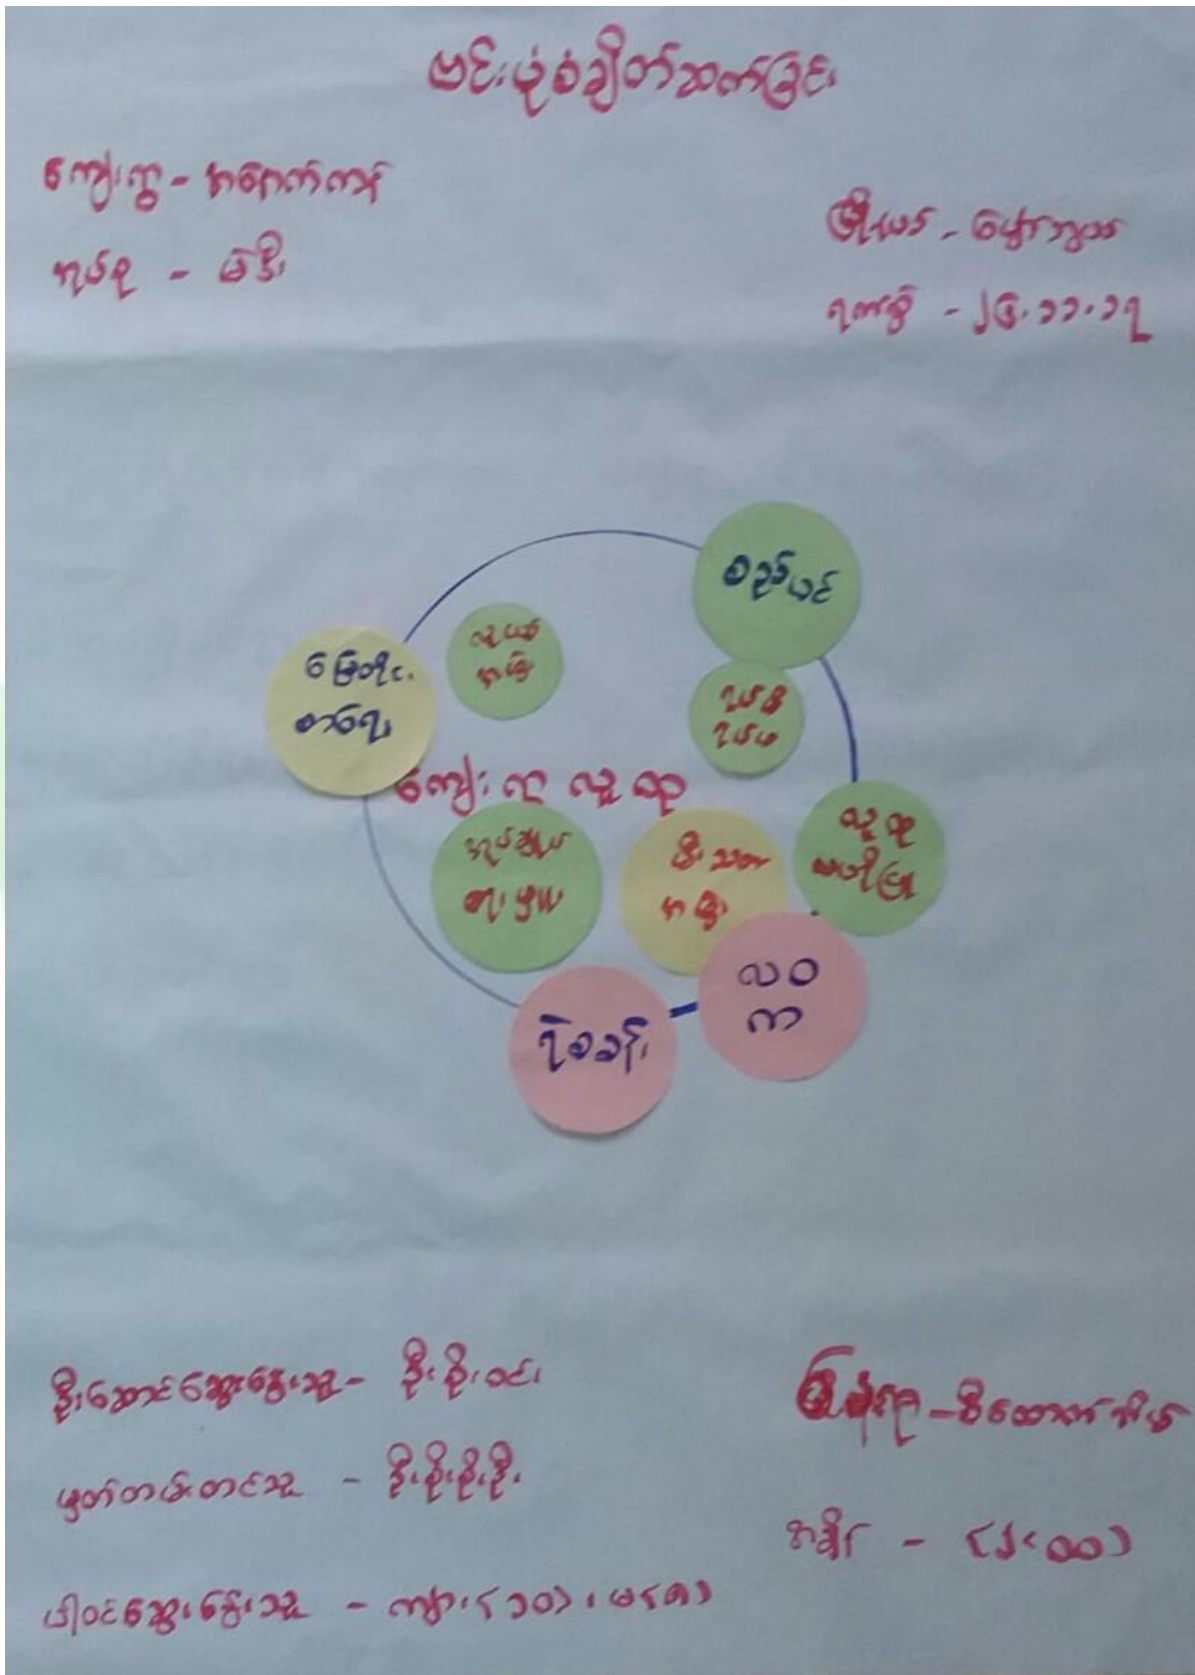 ဗင်းပုံစံချိတ်ဆက်ခြင်း
ကျေးရွာ - အနောက်ကန်
အုပ်စု - မဲဒီး
မြို့နယ် - မော်ဘီ
ရက်စွဲ - ၂၆.၁၁.၁၃
စည်ပင်
မြေတိုင်း
စာရေး
လူငယ်
အဖွဲ့
ရပ်မိ
ရပ်ဖ
ကျေးရွာ လူထု
လူထု
ဗဟိုပြု
အုပ်ချုပ်
ရေးမှူး
မီးသတ်
အဖွဲ့
လဝ
က
ရဲစခန်း
ဦးဆောင်ဆွေးနွေးသူ - ဦးစိုးဝင်း
မှတ်တမ်းတင်သူ - ဦးစိုးစိုးဦး
ပါဝင်ဆွေးနွေးသူ - ကျား(၁၀)၊ မ(၈)
အချိန် - (၂:၀၀)